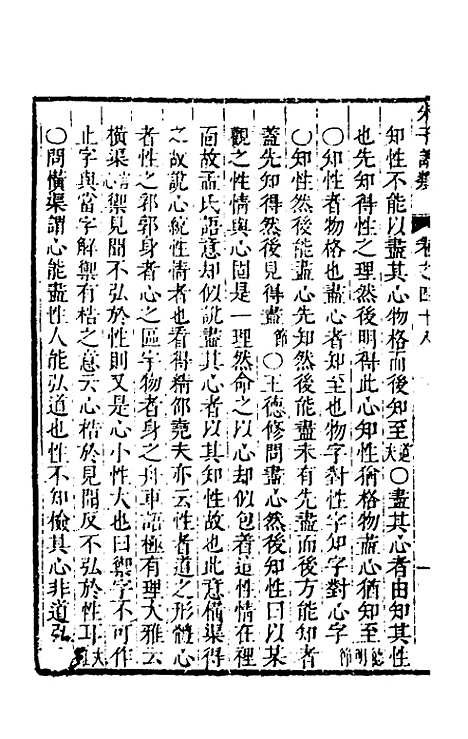 朱子語類 卷之四十八 一
知性不能以盡其心物格而後知至道夫〇盡其心者由知其性
也先知得性之理然後明得此心知性猶格物盡心猶知至節
〇知性者物格也盡心者知至也物字對性字知字對心字節
〇知性然後能盡心先知然後能盡未有先盡而後方能知者
蓋先知得然後見得盡節〇王德修問盡心然後知性曰以某
觀之性情與心固是一理然命之以心却似包着這性情在裡
面故孟氏語意却似說盡其心者以其知性故也此意橫渠得
之故說心統性情者也看得精邵堯夫亦云性者道之形體心
者性之郛郭身者心之區宇物者身之舟車語極有理大雅云
橫渠言心禦見聞不弘於性則又是心小性大也曰禦字不可作
止字與當字解禦有梏之意云心梏於見聞反不弘於性耳大雅
〇問橫渠謂心能盡性人能弘道也性不知檢其心非道弘